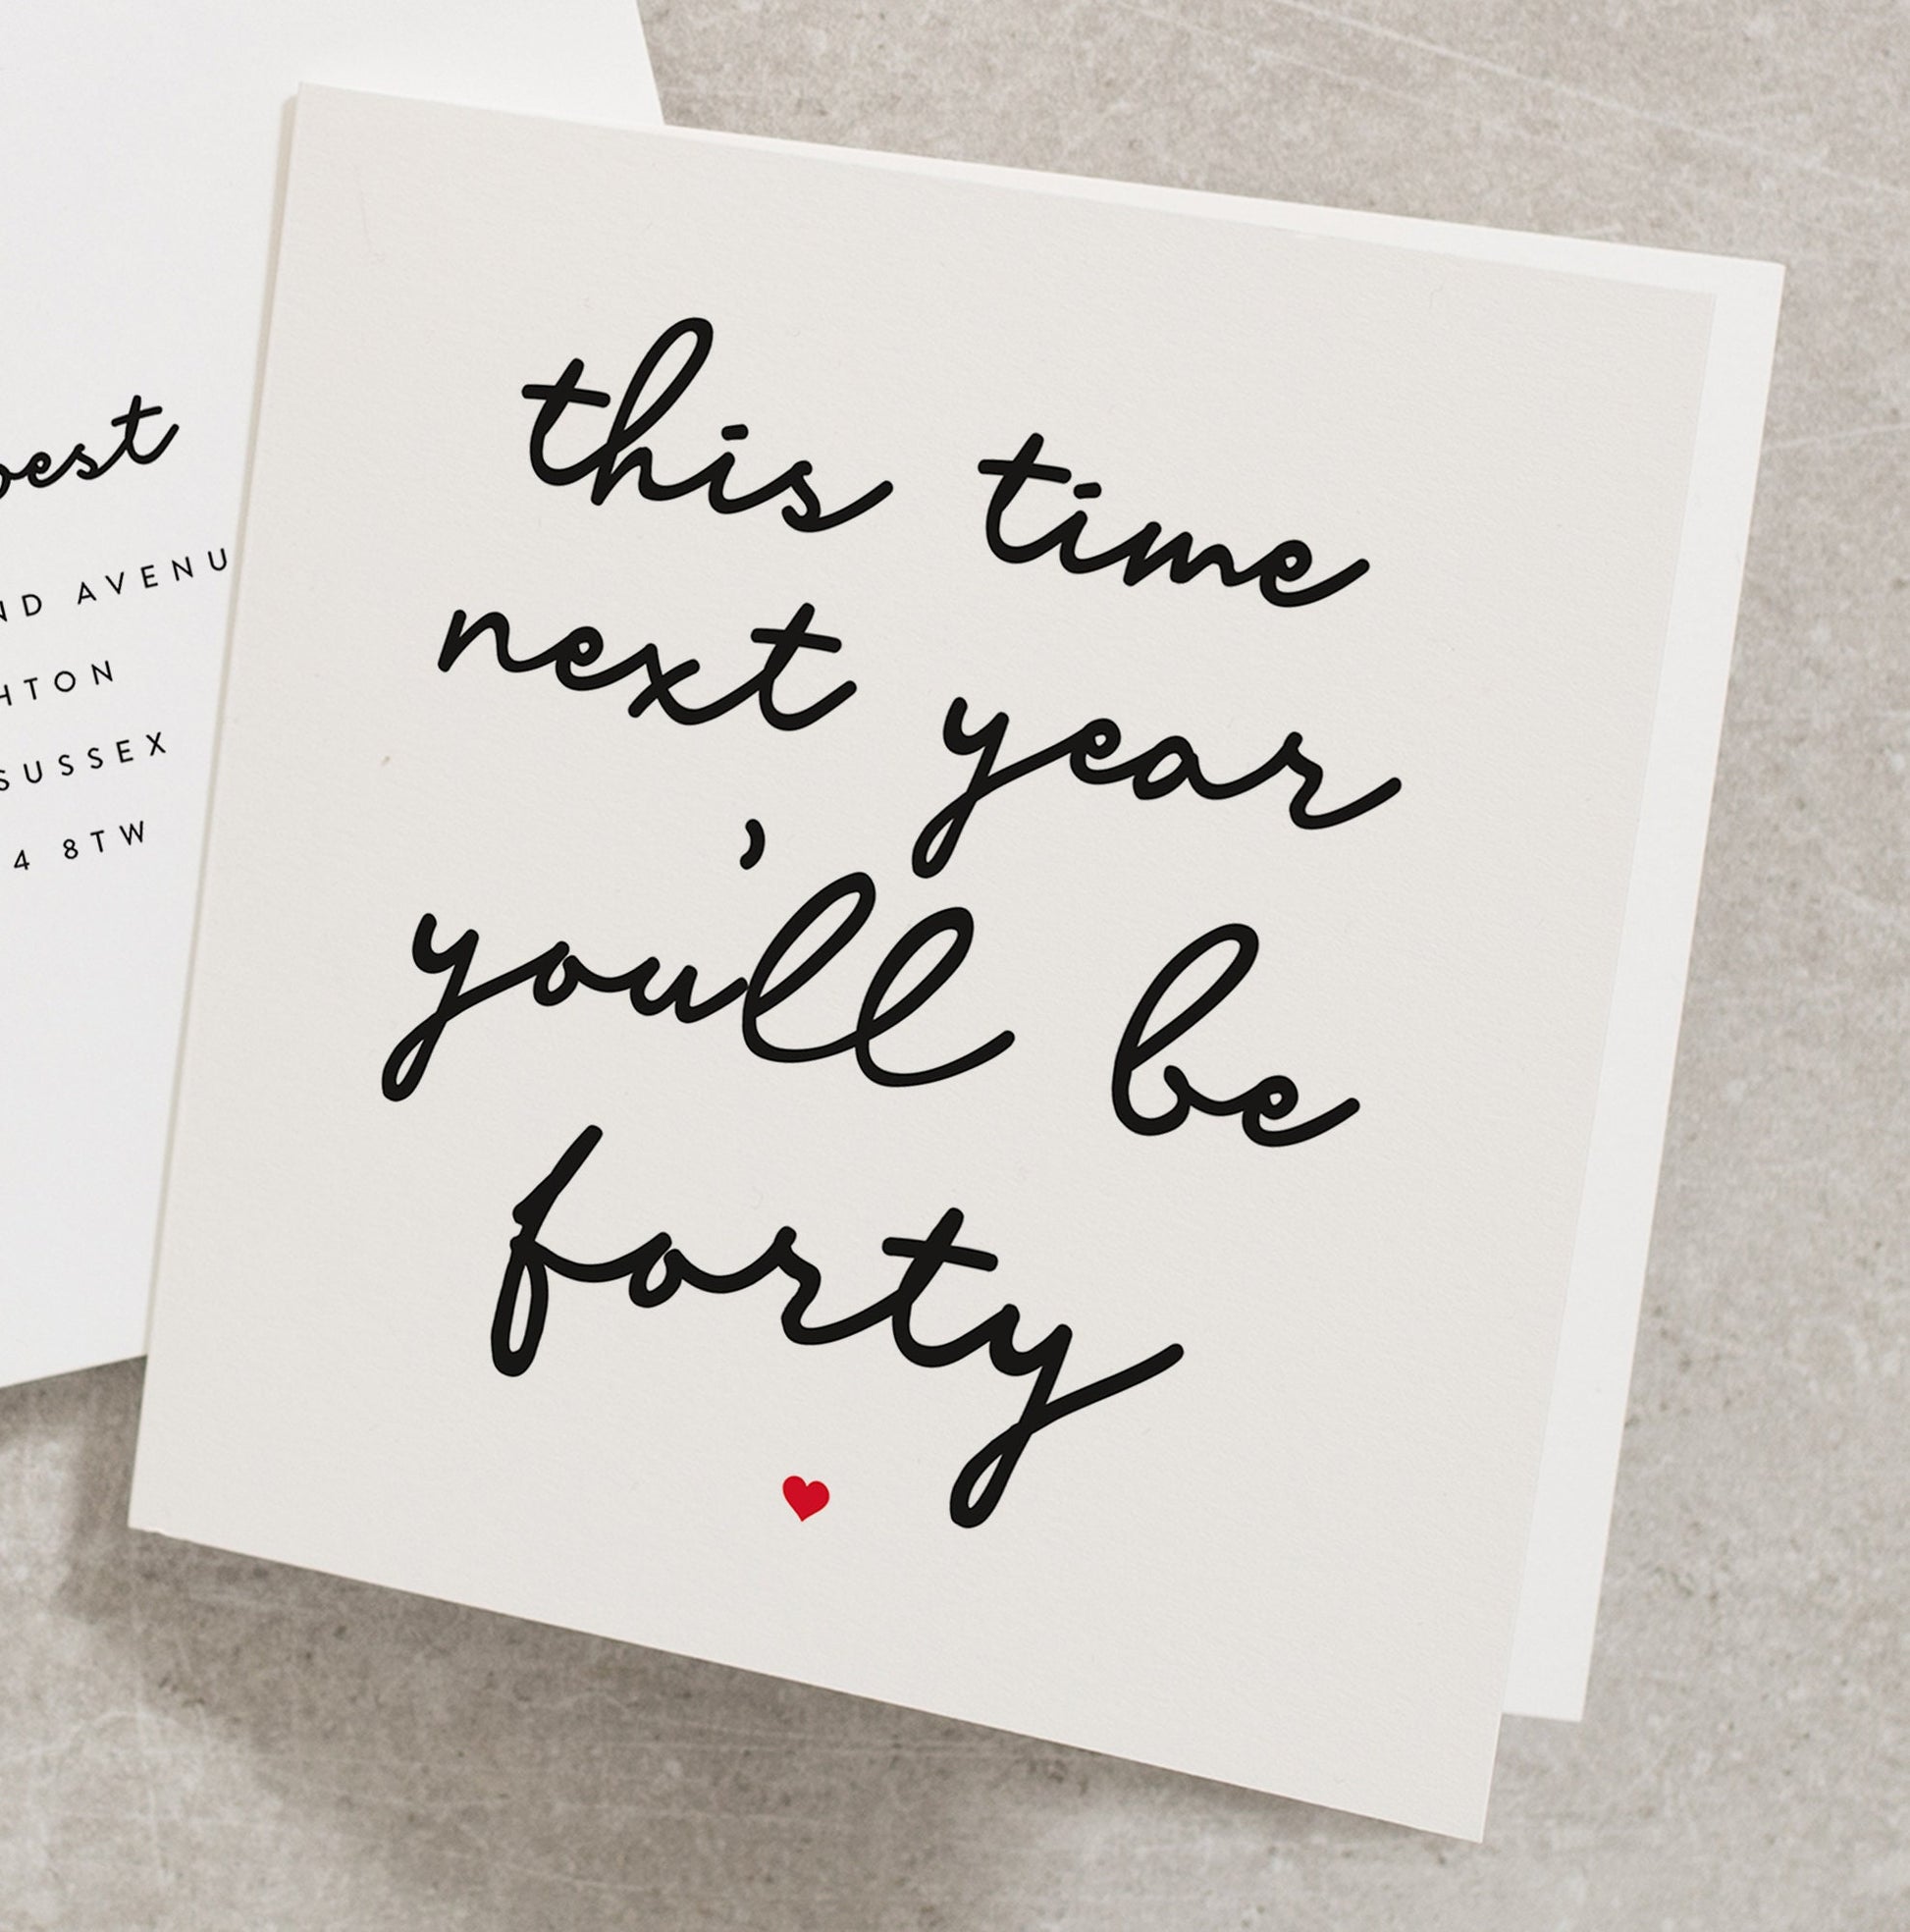 this time
next year
you'll be
forty
AVENU
SUSSEX
4 8TW